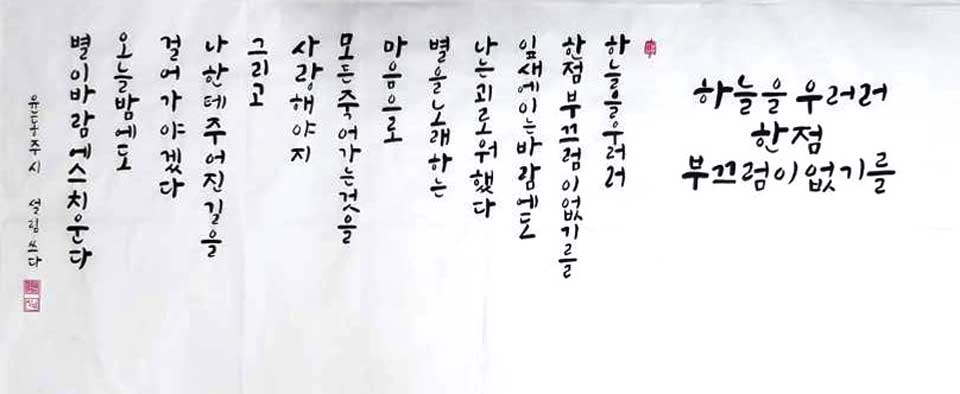 하늘을 우러러
한점
부끄럼이없기를
하늘을우러러
한점부끄럼이없기를
잎새에이는바람에도
나는괴로워했다
별을노래하는
마음으로
모든죽어가는것을
사랑해야지
그리고
나한테주어진길을
걸어가야겠다
오늘밤에도
별이바람에스치운다
윤동주시 설림쓰다